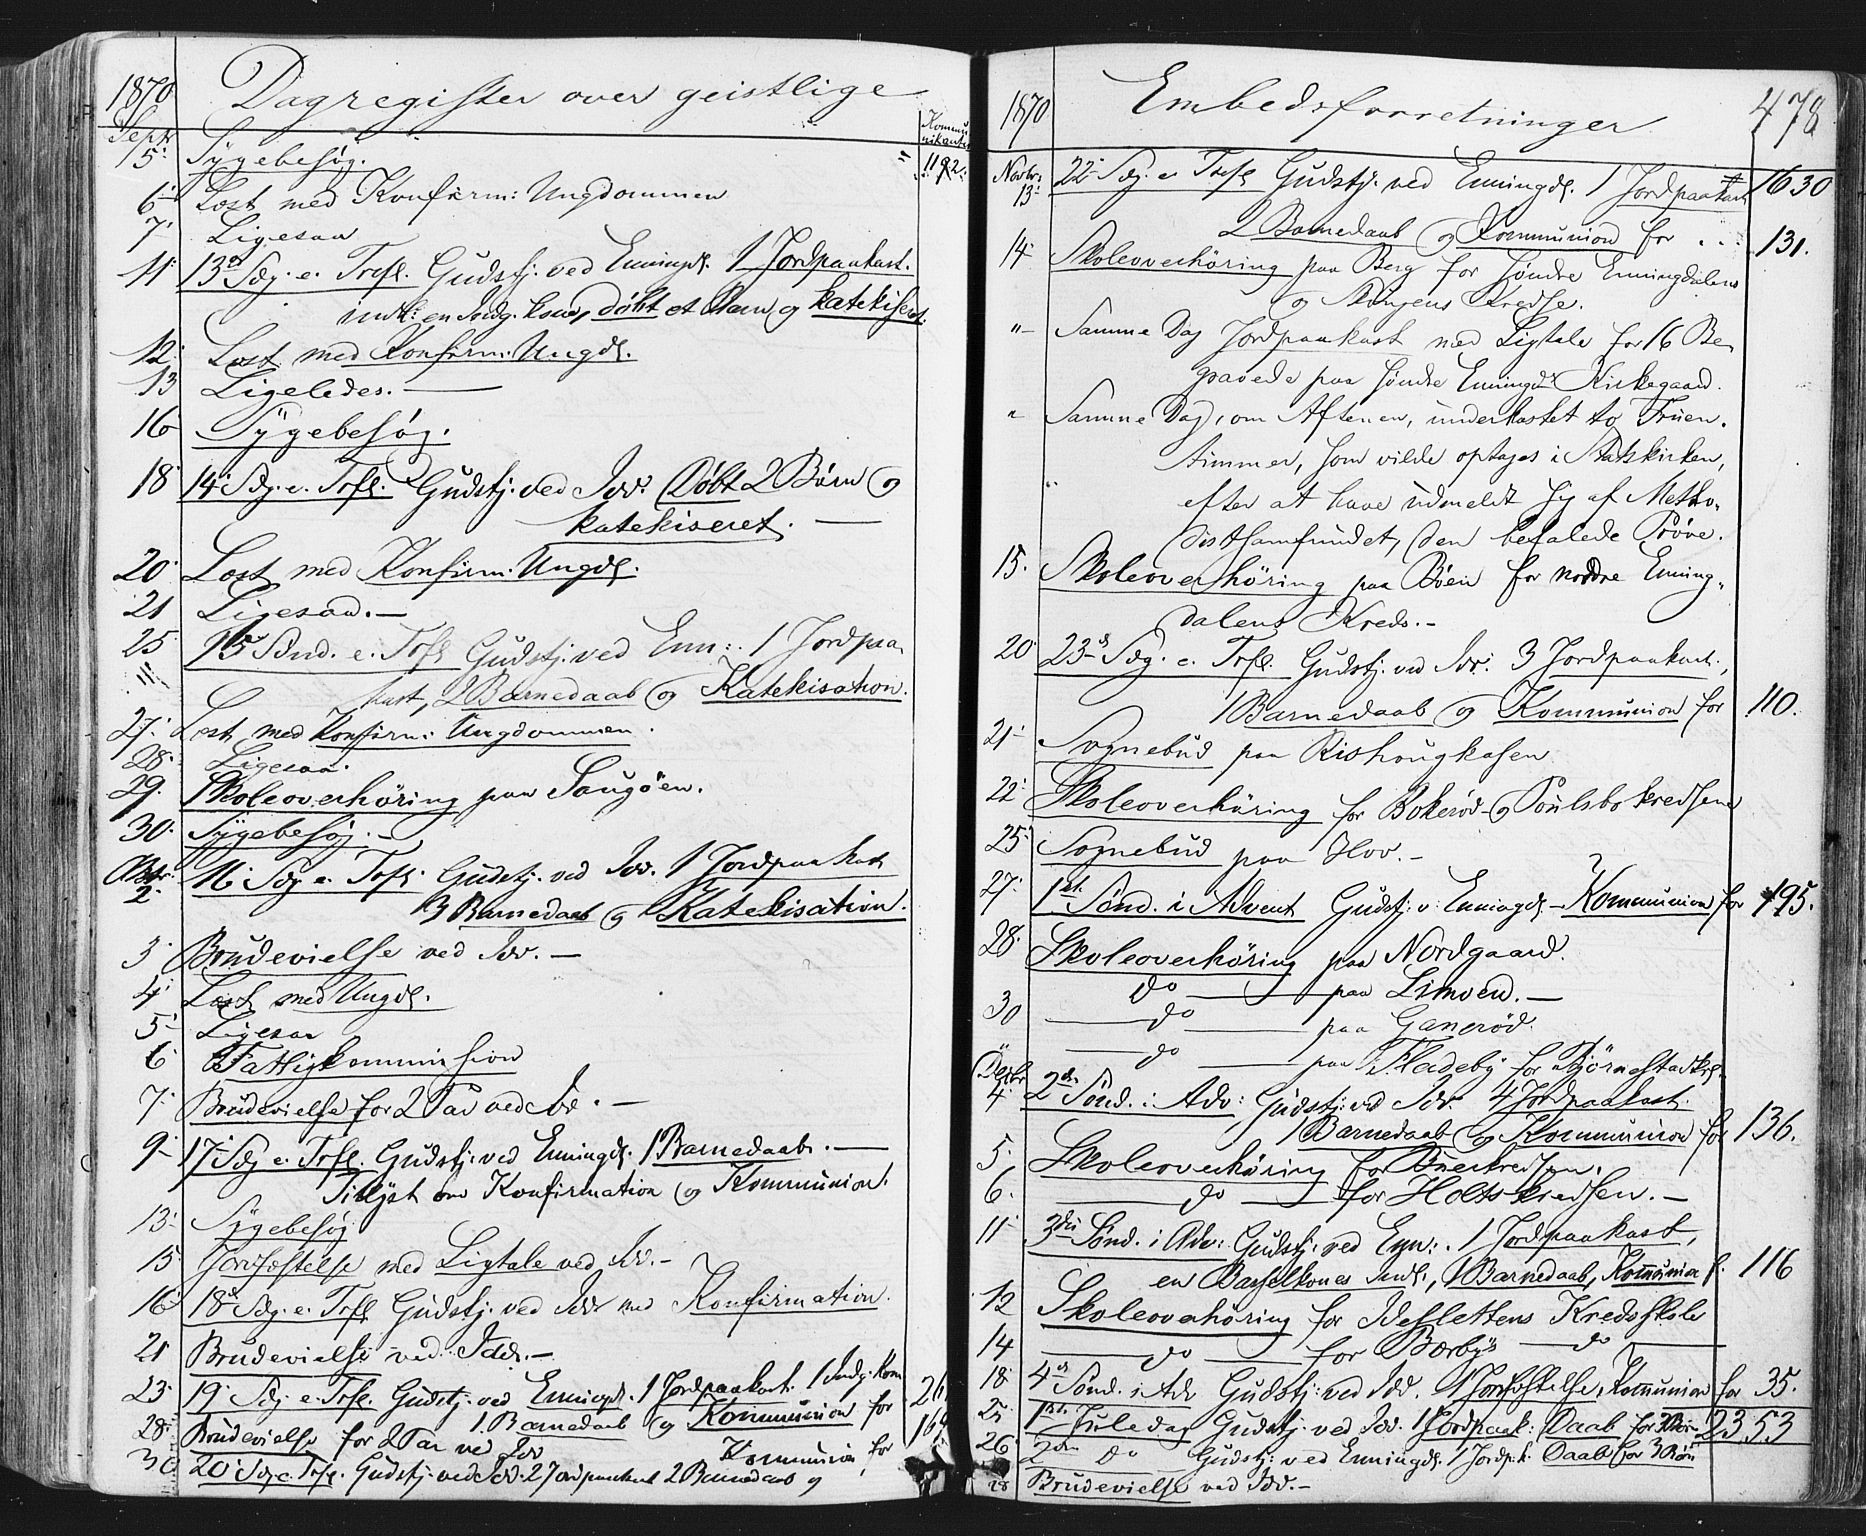 1870 Dagregister over geistlige
Septr Kommunikanter
5: Sygebesøg. = 1192:
6- Læst med Konfirm: Ungdommen
7: Ligesaa
11: 13de Sdg. e. Trefl. Gudstj. ved Enningd. 1 Jordpaakast.
indl: en Sedg. kone, døbt et Barn og katekiseret.
12: Læst med Konfirm: Ungd.
13 Ligeledes.
16 Sygebesøg.
18 14: Sdg. e. Trefl. Gudstj. ved Idd: Døbt 2 Børn og
katekiseret.
20: Læst med Konfirm: Ungd.
21 Ligesaa.
25 15 Sønd. e. Trefl Gudstj: ved Enn: 1 Jordpaa
kast, 2 Barnedaab og Katekisation.
27: Læst med Konfirm: Ungdommen.
28: Ligesaa.
29. Skoleoverhöring paa Saugöen.
30. Sygebesøg.
Oktr. 2 16: Sdg e. Trefl. Gudstj. ved Idd. 1 Jordpaakast
3 Barnedaab og Katekisation.
3. Brudevielse ved Idd.
4: Læst med Ungd.
5- Ligesaa
6 Fattigkommission
7: Brudevielse for 2 Par ved Idd.
9- 17- Sdg e. Trefl. Gudstj. ved Enningd. 1 Barnedaab.
Tillyst om Konfirmation og Kommunion.
13- Sygebesøg
15: Jordfæstelse med Ligtale ved Idd.
16: 18de Sdg. e. Trefl Gudstj. ved Idd med Konfirmation.
21 Brudevielse ved Idd.
23: 19: Sdg. e. Trefl. Gudstj. ved Enningd. 1 Jordpaakast. 1 Indg. Kon
1. Barnedaab og Kommunion for 26
28: Brudevielse for 2 Par ved Idd
Kommunion for 169
30 20: Sdg e. Trefl. Gudstj. ved Idd. 2 Jordpaakast 2 Barnedaab og
1870 Embedsforretninger 478
Novbr. 13- 22- Sdg. e. Trefl Gudstj. ved Enningd. 1 Jordpaakast 1630
2 Barnedaab og Kommunion for 131.
14- Skoleoverhöring paa Berg for søndre Enningdalens
og Kredse.
"- Samme Dag Jordpaakast med Ligtale for 16 Be
gravede paa søndre Enningd. Kirkegaard.
" Samme Dag, om Aftenen, underkastet to Fruen.
timmer, som vilde optages i Statskirken,
" efter at have udmeldt sig af Metho,
distsamfundet, den befalede Prøve.
15. Skoleoverhöring paa Böen for nordre Enning,
dalens Kreds.-
20: 23de Sdg. e. Trefl. Gudstj. ved Idd: 3 Jordpaakast.,
1 Barnedaab og Kommunion for 110.
21- Sognebud paa Rishougkasen
22: Skoleoverhöring for Bokeröd og Poulsbokredsene
25: Sognebud paa Hov.-
27: 1ste Sönd. i Advent Gudstj: v: Enningd.- Kommunion for 195.
28. Skoleoverhöring paa Nordgaard.
do paa Limoen.
30 do paa Ganeröd.
" do paa Fladeby for Björnestadkrds.
Decbr 4 2den Sönd. i. Adv: Gudstj: ved Idd: 4 Jordpaakast.
1 Barnedaab og Kommunion for 136.
5. Skoleoverhöring for kredsen.
6. do for Holtskredsen.
11- 3die Sönd. i Adv: Gudstj: ved Enn:. 1 Jordpaakast,
en Barselkones Indl., 1 Barnedaab, Kommunion f. 116
12 Skoleoverhöring for Idslettens Kredsskole
14 do for Bærby do
18: 4de Sönd. i Adv Gudstj: ved Idd. 1 Jordfæstelse, Kommunion for 35.
25 1ste Juledag Gudstj: ved Idd. 1 Jordpaak: Daab for 3 Börn 2353
26: 2den Do Gudstj: ved Enningd. 1 Jordp.k. Daab for 3 Börn
28 Brudevielse ved Idd.-